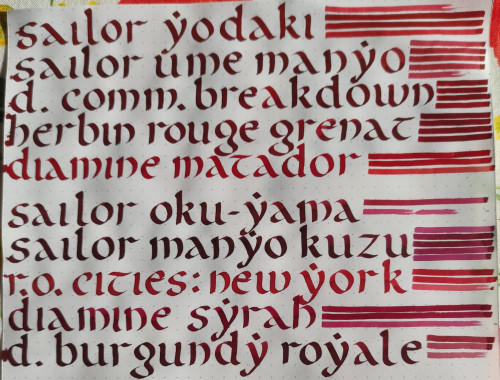 sailor ẏodaki
sailor ume manẏo
d. comm. breakdown
herbin rouge grenat
diamine matador
sailor oku-ẏama
sailor manẏo kuzu
r.o. cities: new ẏork
diamine sẏrah
d. burgundẏ roẏale